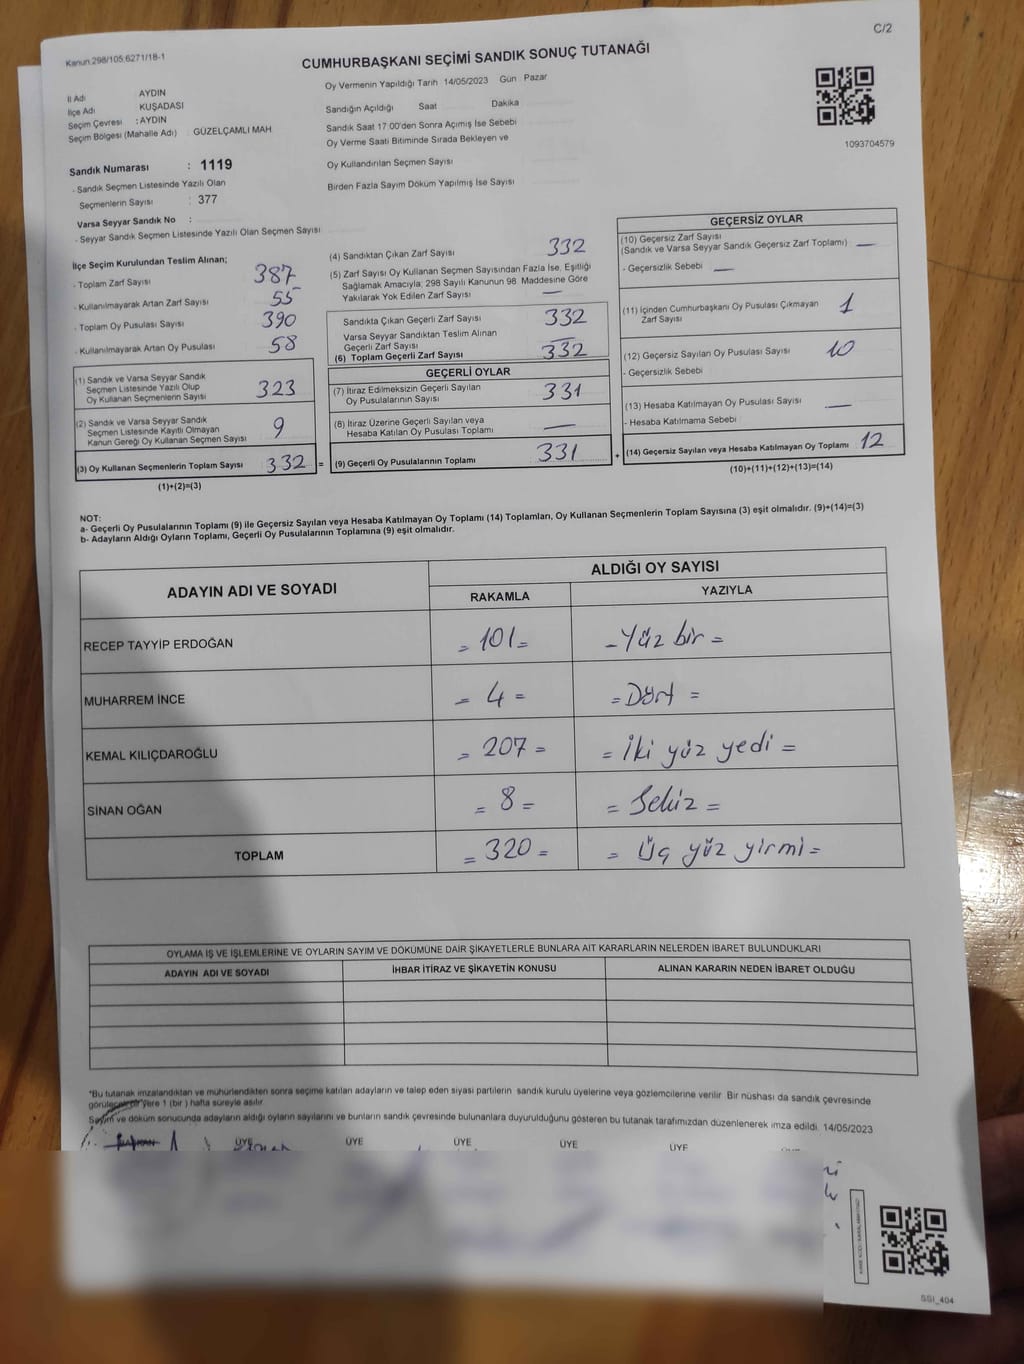 C/2
Kanun.298/105;6271/18-1
CUMHURBAŞKANI SEÇİMİ SANDIK SONUÇ TUTANAĞI
Oy Vermenin Yapıldığı Tarih 14/05/2023 Gün : Pazar
İl Adı AYDIN
İlçe Adı KUŞADASI
Seçim Çevresi : AYDIN
Seçim Bölgesi (Mahalle Adı) : GÜZELÇAMLI MAH
Sandığın Açıldığı Saat Dakika
Sandık Saat 17:00'den Sonra Açımış İse Sebebi
Oy Verme Saati Bitiminde Sırada Bekleyen ve
Oy Kullandırılan Seçmen Sayısı
Birden Fazla Sayım Döküm Yapılmış İse Sayısı
1093704579
Sandık Numarası : 1119
- Sandık Seçmen Listesinde Yazılı Olan
Seçmenlerin Sayısı : 377
Varsa Seyyar Sandık No :
- Seyyar Sandık Seçmen Listesinde Yazılı Olan Seçmen Sayısı
İlçe Seçim Kurulundan Teslim Alınan;
- Toplam Zarf Sayısı 387
- Kullanılmayarak Artan Zarf Sayısı 55
- Toplam Oy Pusulası Sayısı 390
- Kullanılmayarak Artan Oy Pusulası 58
(1) Sandık ve Varsa Seyyar Sandık
Seçmen Listesinde Yazılı Olup
Oy Kullanan Seçmenlerin Sayısı 323
(2) Sandık ve Varsa Seyyar Sandık
Seçmen Listesinde Kayıtlı Olmayan
Kanun Gereği Oy Kullanan Seçmen Sayısı 9
(3) Oy Kullanan Seçmenlerin Toplam Sayısı 332 =
(1)+(2)=(3)
(4) Sandıktan Çıkan Zarf Sayısı 332
(5) Zarf Sayısı Oy Kullanan Seçmen Sayısından Fazla İse, Eşitliği
Sağlamak Amacıyla, 298 Sayılı Kanunun 98. Maddesine Göre
Yakılarak Yok Edilen Zarf Sayısı —
Sandıkta Çıkan Geçerli Zarf Sayısı 332
Varsa Seyyar Sandıktan Teslim Alınan
Geçerli Zarf Sayısı —
(6) Toplam Geçerli Zarf Sayısı 332
GEÇERLİ OYLAR
(7) İtiraz Edilmeksizin Geçerli Sayılan
Oy Pusulalarının Sayısı 331
(8) İtiraz Üzerine Geçerli Sayılan veya
Hesaba Katılan Oy Pusulası Toplamı —
(9) Geçerli Oy Pusulalarının Toplamı 331 +
GEÇERSİZ OYLAR
(10) Geçersiz Zarf Sayısı
(Sandık ve Varsa Seyyar Sandık Geçersiz Zarf Toplamı) —
- Geçersizlik Sebebi —
(11) İçinden Cumhurbaşkanı Oy Pusulası Çıkmayan
Zarf Sayısı 1
(12) Geçersiz Sayılan Oy Pusulası Sayısı 10
- Geçersizlik Sebebi
(13) Hesaba Katılmayan Oy Pusulası Sayısı —
- Hesaba Katılmama Sebebi
(14) Geçersiz Sayılan veya Hesaba Katılmayan Oy Toplamı 12
(10)+(11)+(12)+(13)=(14)
NOT:
a- Geçerli Oy Pusulalarının Toplamı (9) ile Geçersiz Sayılan veya Hesaba Katılmayan Oy Toplamı (14) Toplamları, Oy Kullanan Seçmenlerin Toplam Sayısına (3) eşit olmalıdır. (9)+(14)=(3)
b- Adayların Aldığı Oyların Toplamı, Geçerli Oy Pusulalarının Toplamına (9) eşit olmalıdır.
ADAYIN ADI VE SOYADI ALDIĞI OY SAYISI
RAKAMLA YAZIYLA
RECEP TAYYİP ERDOĞAN = 101 = - Yüz bir =
MUHARREM İNCE = 4 = = Dört =
KEMAL KILIÇDAROĞLU = 207 = = İki yüz yedi =
SİNAN OĞAN = 8 = = Sekiz =
TOPLAM = 320 = = Üç yüz yirmi =
OYLAMA İŞ VE İŞLEMLERİNE VE OYLARIN SAYIM VE DÖKÜMÜNE DAİR ŞİKAYETLERLE BUNLARA AİT KARARLARIN NELERDEN İBARET BULUNDUKLARI
ADAYIN ADI VE SOYADI İHBAR İTİRAZ VE ŞİKAYETİN KONUSU ALINAN KARARIN NEDEN İBARET OLDUĞU
*Bu tutanak imzalandıktan ve mühürlendikten sonra seçime katılan adayların ve talep eden siyasi partilerin sandık kurulu üyelerine veya gözlemcilerine verilir. Bir nüshası da sandık çevresinde
görülecek bir yere 1 (bir ) hafta süreyle asılır.
Sayım ve döküm sonucunda adayların aldığı oyların sayılarını ve bunların sandık çevresinde bulunanlara duyurulduğunu gösteren bu tutanak tarafımızdan düzenlenerek imza edildi. 14/05/2023
BAŞKAN ÜYE ÜYE ÜYE ÜYE ÜYE
SSI_404